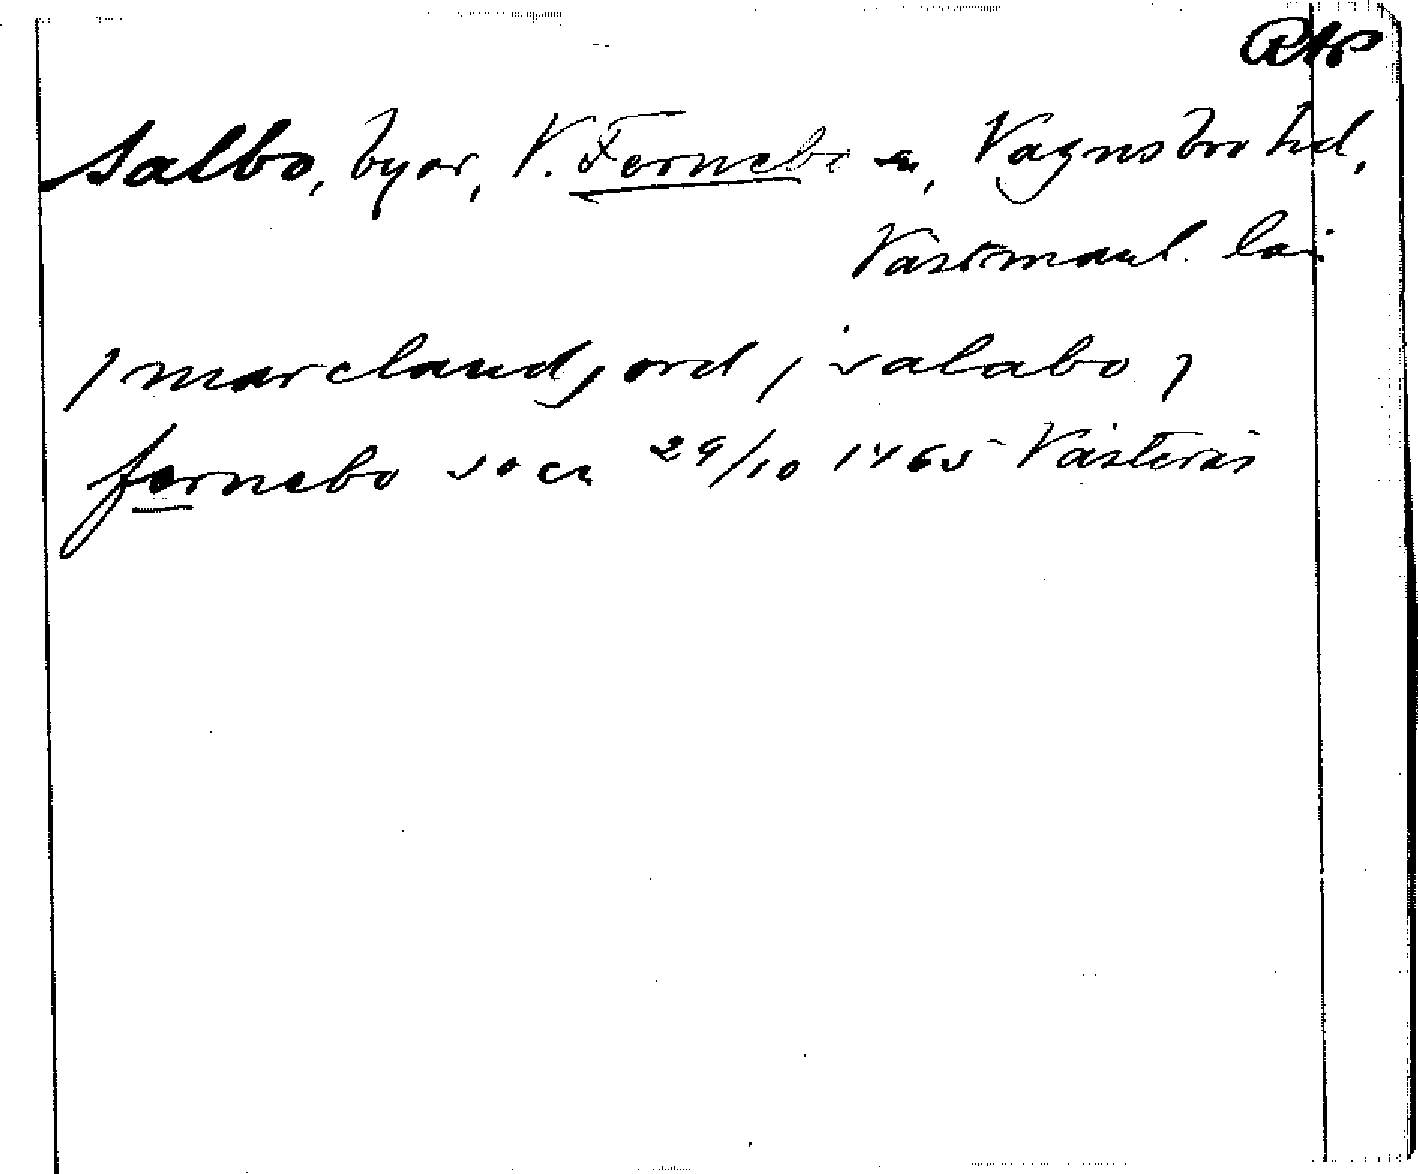 RAP
Salbo, byar, V. Fernebo sn, Vagnsbro hd,
Västmanl. län
j marcland jord j salabo j
fernebo socn 29/10 1465 Västerås